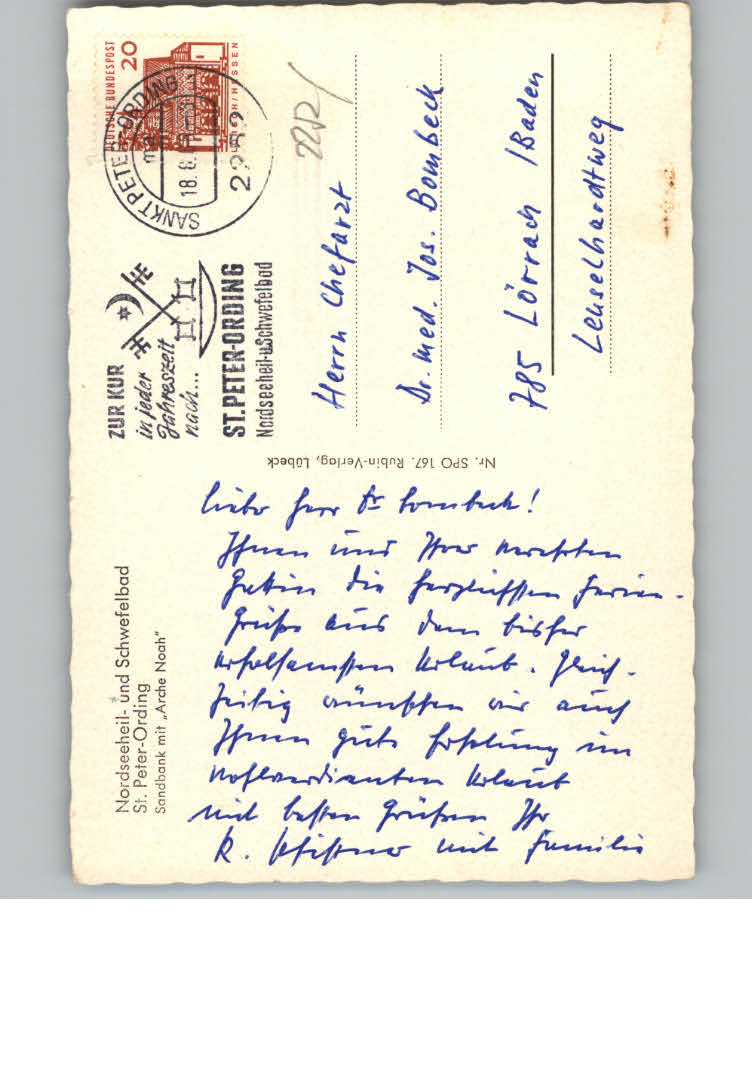 Nordseeheil- und Schwefelbad
St. Peter-Ording
Sandbank mit „Arche Noah"
Lieber Herr Dr Bombeck!
Ihnen und Ihrer verehrten
Gattin die herzlichsten Ferien-
grüße aus dem bisher
erholsamsten Urlaub. Gleich-
zeitig wünschen wir auch
Ihnen gute Erholung im
wohlverdienten Urlaub
mit besten Grüßen Ihr
K. mit Familie
Nr. SPO 167. Rubin-Verlag, Lübeck
ZUR KUR
in jeder
Jahreszeit
nach...
ST. PETER-ORDING
Nordseeheil-u.Schwefelbad
DEUTSCHE BUNDESPOST
20
SANKT PETER-ORDING
18.8.
2252
2252/
Herrn Chefarzt
Dr. med. Jos. Bombeck
785 Lörrach /Baden
Leuselhardtweg